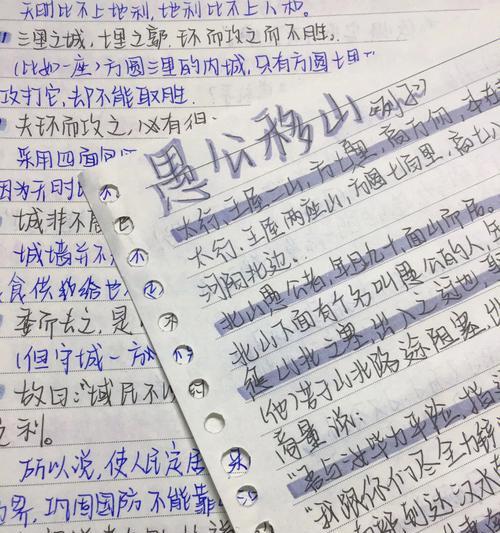 天时比不上地利，地利比不上人和。
三里之城，七里之郭，环而攻之而不胜。
(比如一座)方圆三里的内城，只有方圆七里
攻打它，却不能取胜.
夫环而攻之，必有得
采用四面包围
因为天时比
城非不
城墙并不
食供给
委而去之，是
(但守城一方
故曰:"域民不
之利。
所以说，使人民定居
界，巩固国防不能靠
愚公移山 列子
太行、王屋二山，方七百里，高万仞，本在
太行、王屋两座山，方圆七百里，高七
河阳北边.
北山愚公者，年且九十，面山而居。
北山下面有个名叫愚公的人，
惩山北之塞，出入之迂也，
(他)苦于山北路途阻塞，
商量说:
"吾与汝毕力平险，指
"我跟你们尽全力
到达汉水
不
不